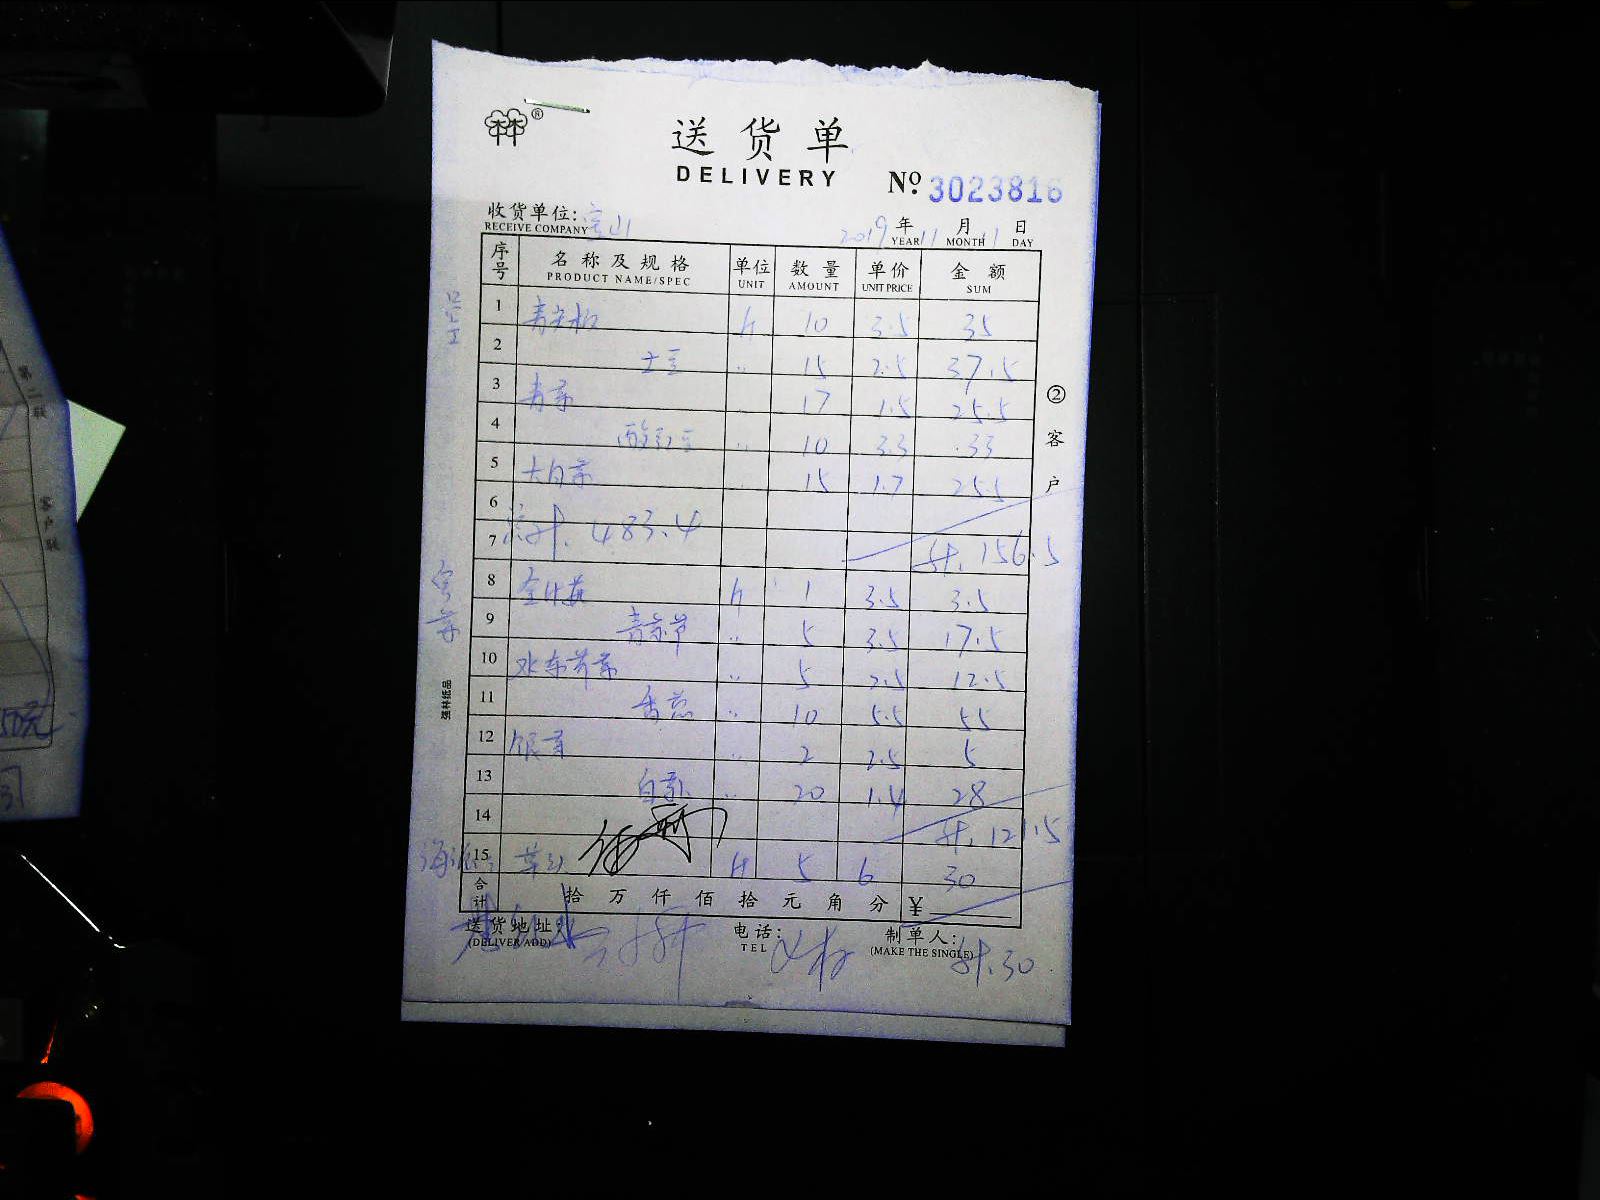 ®
送货单
DELIVERY
Nº. 3023816
收货单位: 宝山
RECEIVE COMPANY
2019 年 11 月 11 日
YEAR MONTH DAY
序号 名称及规格 单位 数量 单价 金额
PRODUCT NAME/SPEC UNIT AMOUNT UNIT PRICE SUM
1 10 3.5 35
2 土豆 15 2.5 37.5
3 青菜 17 1.5 25.5
4 酸豇豆 10 3.3 33
5 大白菜 15 1.7 25.5
6
7 总计. 483.4 计. 156.5
8 1 3.5 3.5
9 5 3.5 17.5
10 5 2.5 12.5
11 香葱 10 5.5 55
12 银芽 2 2.5 5
13 20 1.4 28
14 计. 121.5
15 草头 5 6 30
合计 拾 万 仟 佰 拾 元 角 分 ¥
送货地址:
(DELIVER ADD)
电话:
TEL
制单人:
(MAKE THE SINGLE)
计. 30
② 客户
强林纸品
第二联
客户联